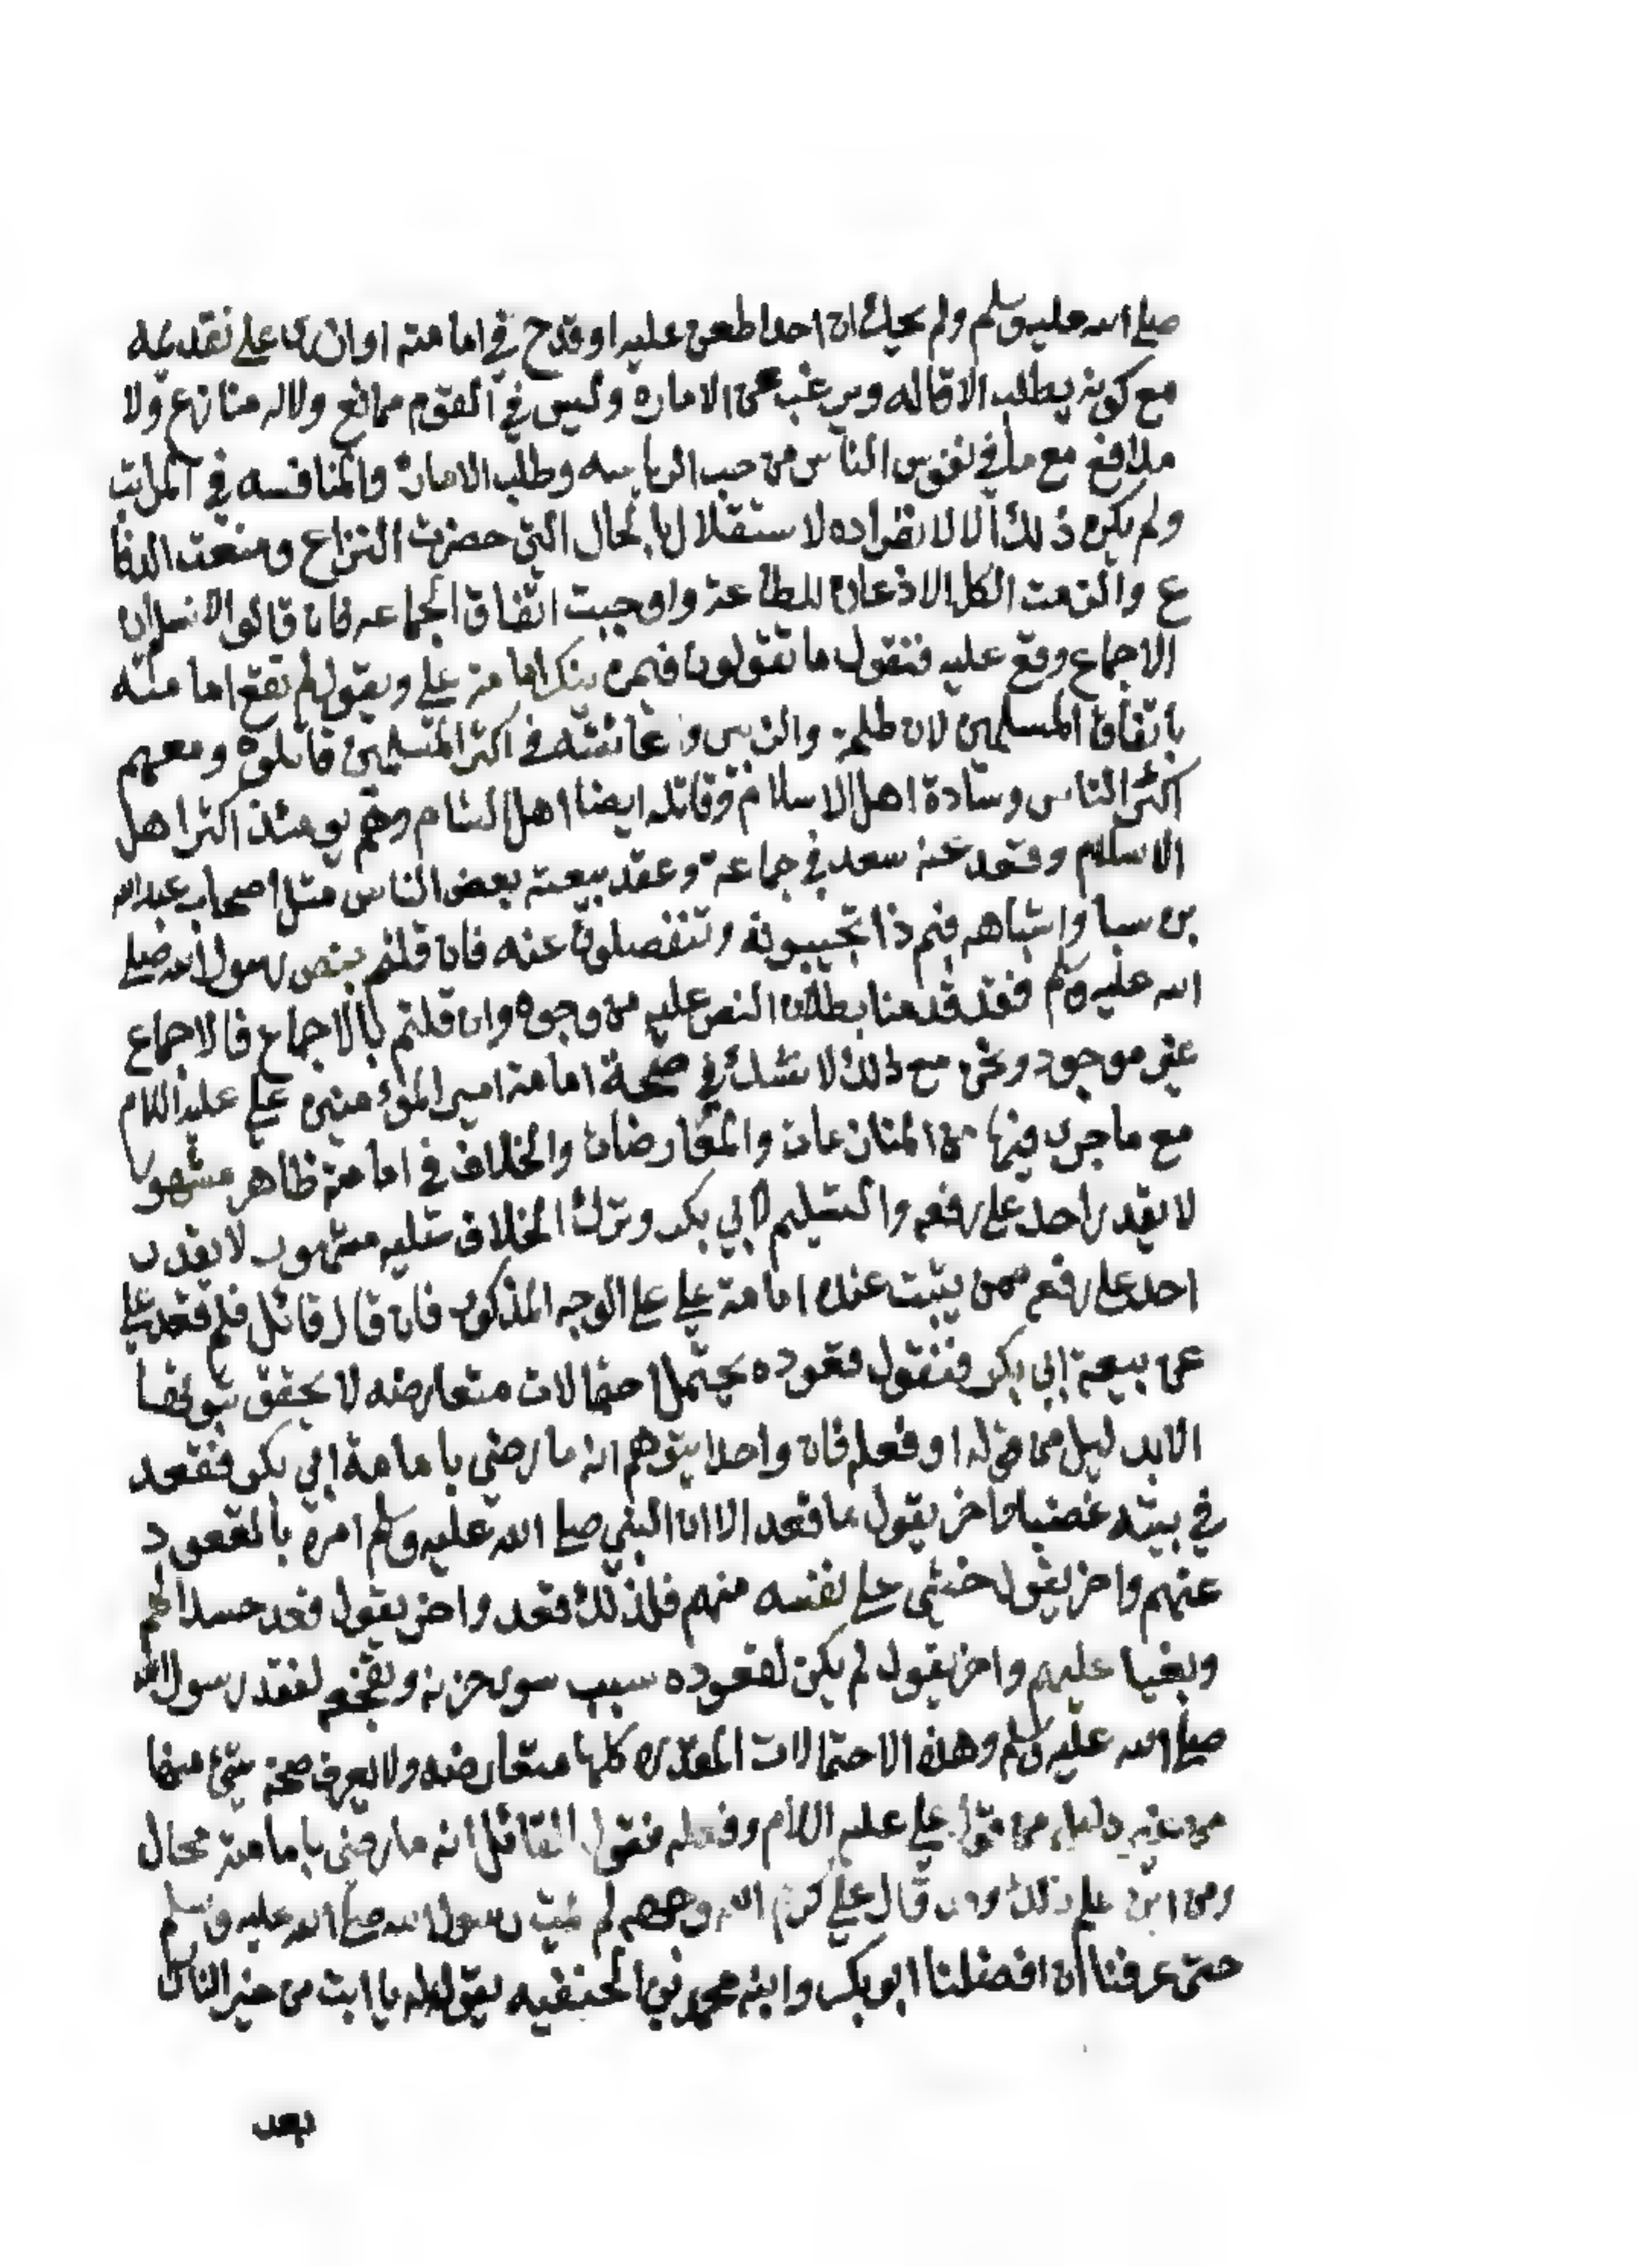 صلى الله عليه وسلم ولم يحك ان احدا طعن عليه او قدح في امامته او ازرى على تقديمه
مع كونه يطلب الاقاله ويرغب عن الاماره وليس في القوم ممانع ولا له منازع ولا
مدافع مع ما في نفوس الناس من حب الرياسه وطلب الامارة والمنافسه في المراتب
ولم يكن ذلك الا لانفراده لاستقلال بالحال التي حضرت النزاع ومنعت الدفا
ع والزمت الكل الاذعان للطاعة واوجبت اتفاق الجماعه فان قالوا لا نسلم ان
الاجماع وقع عليه فنقول ما تقولون فيمن ينكر امامة علي ويقول لم تقع امامته
باتفاق المسلمين لان طلحة والزبير وعائشه في اكثر المسلمين قاتلوه ومعهم
اكثر الناس وسادة اهل الاسلام وقاتله ايضا اهل الشام وهم يومئذ اكثر اهل
الاسلام وقعد عنه سعد في جماعة وعقد بيعته بعض الناس مثل اصحاب عبدالله
بن سبا واشباههم فبم ذا تجيبونه وتنفصلون عنه فان قلتم بنص رسول الله صلى
الله عليه وسلم فقد قدمنا بطلان النص عليه من وجوه وان قلتم بالاجماع فالاجماع
غير موجود ونحن مع ذلك لا نشك في صحة امامة امير المؤمنين علي عليه السلام
مع ما جرى فيها من المنازعات والمعارضات والخلاف في امامته ظاهر مشهور
لا يقدر احد على رفعه والتسليم لابي بكر وترك الخلاف عليه مشهور لا يقدر
احد على رفعه ممن يثبت عنده امامة علي على الوجه المذكور فان قال قائل فلم قعد علي
عن بيعة ابي بكر فنقول قعوده يحتمل احتمالات متعارضه لا يحقق ثبوتها
الا بدليل من قوله او فعله فان واحدا يتوهم انه ما رضي بامامة ابي بكر فقعد
في بيته غضبا واخر يقول ما قعد الا ان النبي صلى الله عليه وسلم امره بالقعود
عنهم واخر يقول خشي على نفسه منهم فلذلك قعد واخر يقول قعد حسدا لهم
وبغيا عليهم واخر يقول لم يكن لقعوده سبب سوى حزنه وتفجعه لفقد رسول الله
صلى الله عليه وسلم وهذه الاحتمالات المقدره كلها متعارضه ولا يعرف صحة شيء منها
من غير دليل من قول علي عليه السلام وفعله فقول القائل انه ما رضي بامامته محال
ومن اين علم ذلك وقد قال علي كرم الله وجهه لم يمت رسول الله صلى الله عليه وسلم
حتى عرفنا ان افضلنا ابو بكر وابنه محمد بن الحنفيه يقول له يا ابت من خير الناس
بعد